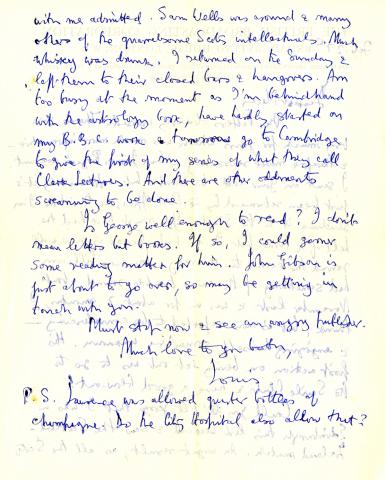 with me admitted. Sam Wells was around & many
others of the quarrelsome Scots intellectuals. Much
whiskey was drunk. I returned on the Sunday &
left them to their closed bars & hangovers. Am
too busy at the moment as I'm behindhand
with the astrology book, have hardly started on
my B.B.C. work & tomorrow go to Cambridge
to give the first of my series of what they call
Clark Lectures. And there are other oddments
screaming to be done.
Is George well enough to read? I don't
mean letters but books. If so, I could garner
some reading matter for him. John Gibson is
just about to go over, so may be getting in
touch with you.
Must stop now & see an angry publisher.
Much love to you both,
Louis
P.S. Laurence was allowed quarter bottles of
champagne. Do the City Hospital also allow that?